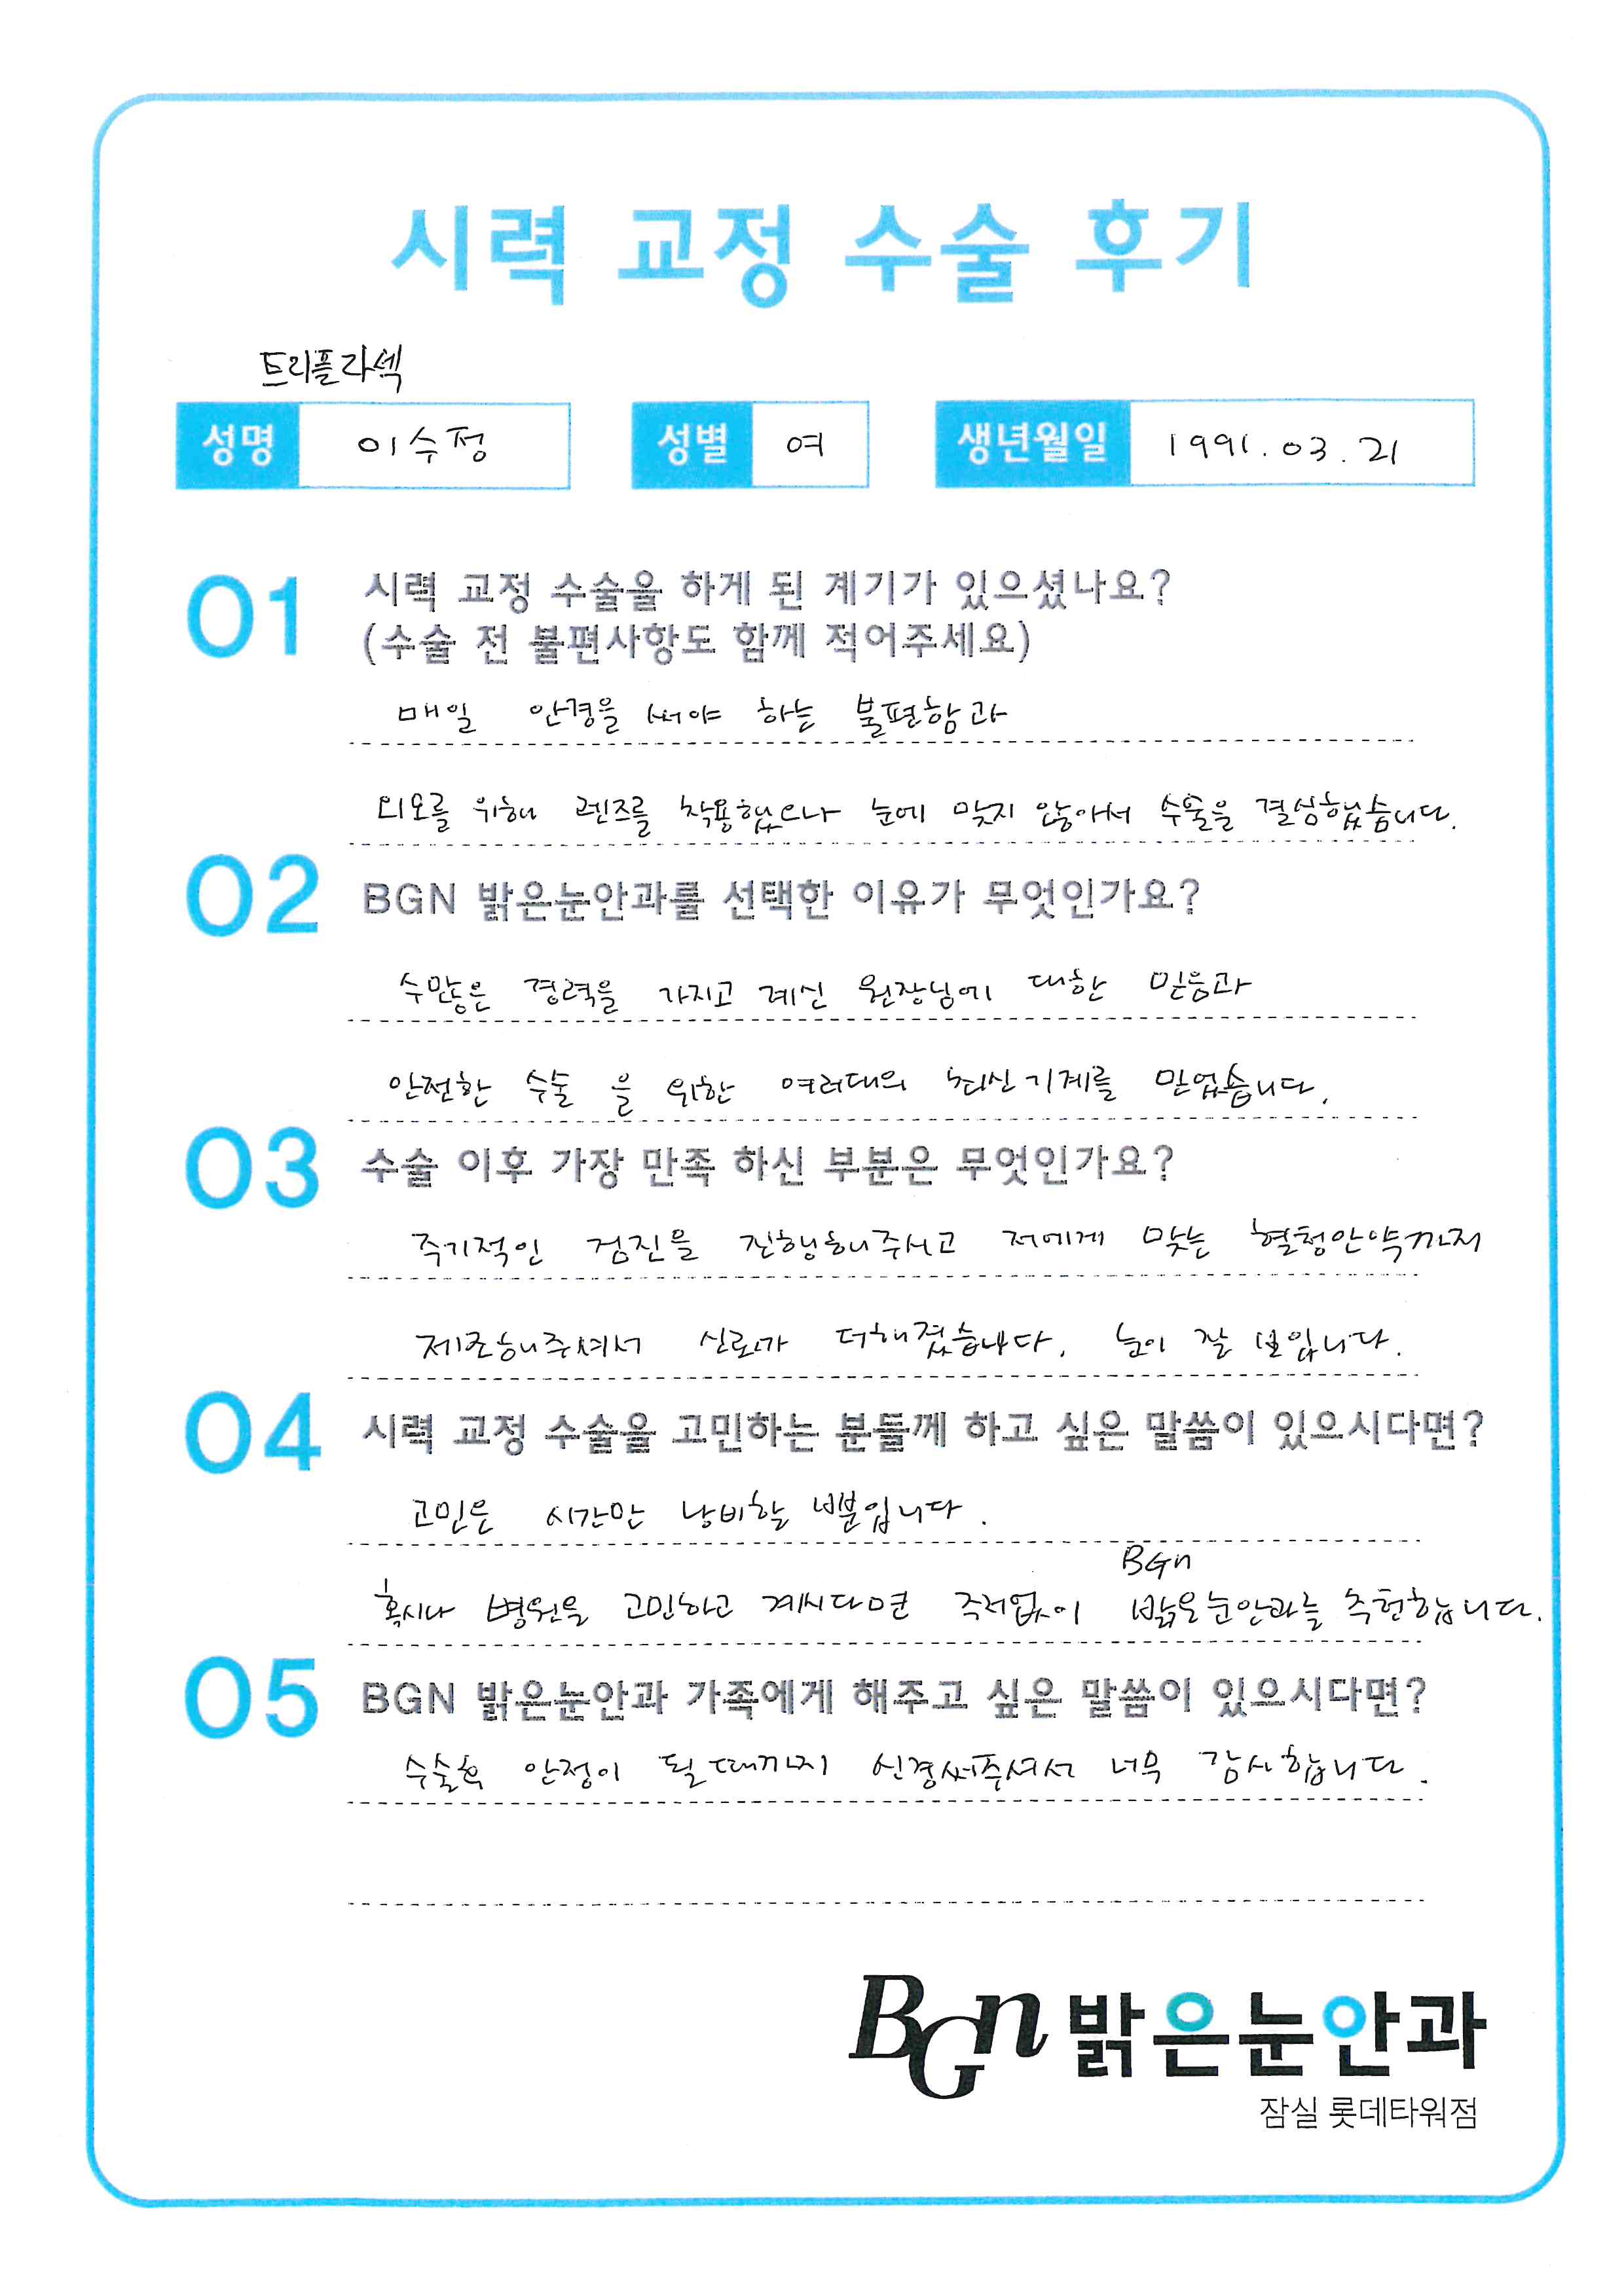 시력 교정 수술 후기
트리플라섹
성명 이수정 성별 여 생년월일 1991.03.21
01 시력 교정 수술을 하게 된 계기가 있으셨나요?
(수술 전 불편사항도 함께 적어주세요)
매일 안경을 써야 하는 불편함과
외모를 위해 렌즈를 착용했으나 눈에 맞지 않아서 수술을 결심했습니다.
02 BGN 밝은눈안과를 선택한 이유가 무엇인가요?
수많은 경력을 가지고 계신 원장님에 대한 믿음과
안전한 수술 을 위한 여러대의 최신기계를 믿었습니다.
03 수술 이후 가장 만족 하신 부분은 무엇인가요?
주기적인 검진을 진행해주시고 저에게 맞는 혈청안약까지
제조해주셔서 신뢰가 더해졌습니다. 눈이 잘 보입니다.
04 시력 교정 수술을 고민하는 분들께 하고 싶은 말씀이 있으시다면?
고민은 시간만 낭비할 뿐입니다.
BGn
혹시나 병원을 고민하고 계시다면 주저없이 밝은눈안과를 추천합니다.
05 BGN 밝은눈안과 가족에게 해주고 싶은 말씀이 있으시다면?
수술후 안정이 될때까지 신경써주셔서 너무 감사합니다.
BGn 밝은눈안과
잠실 롯데타워점